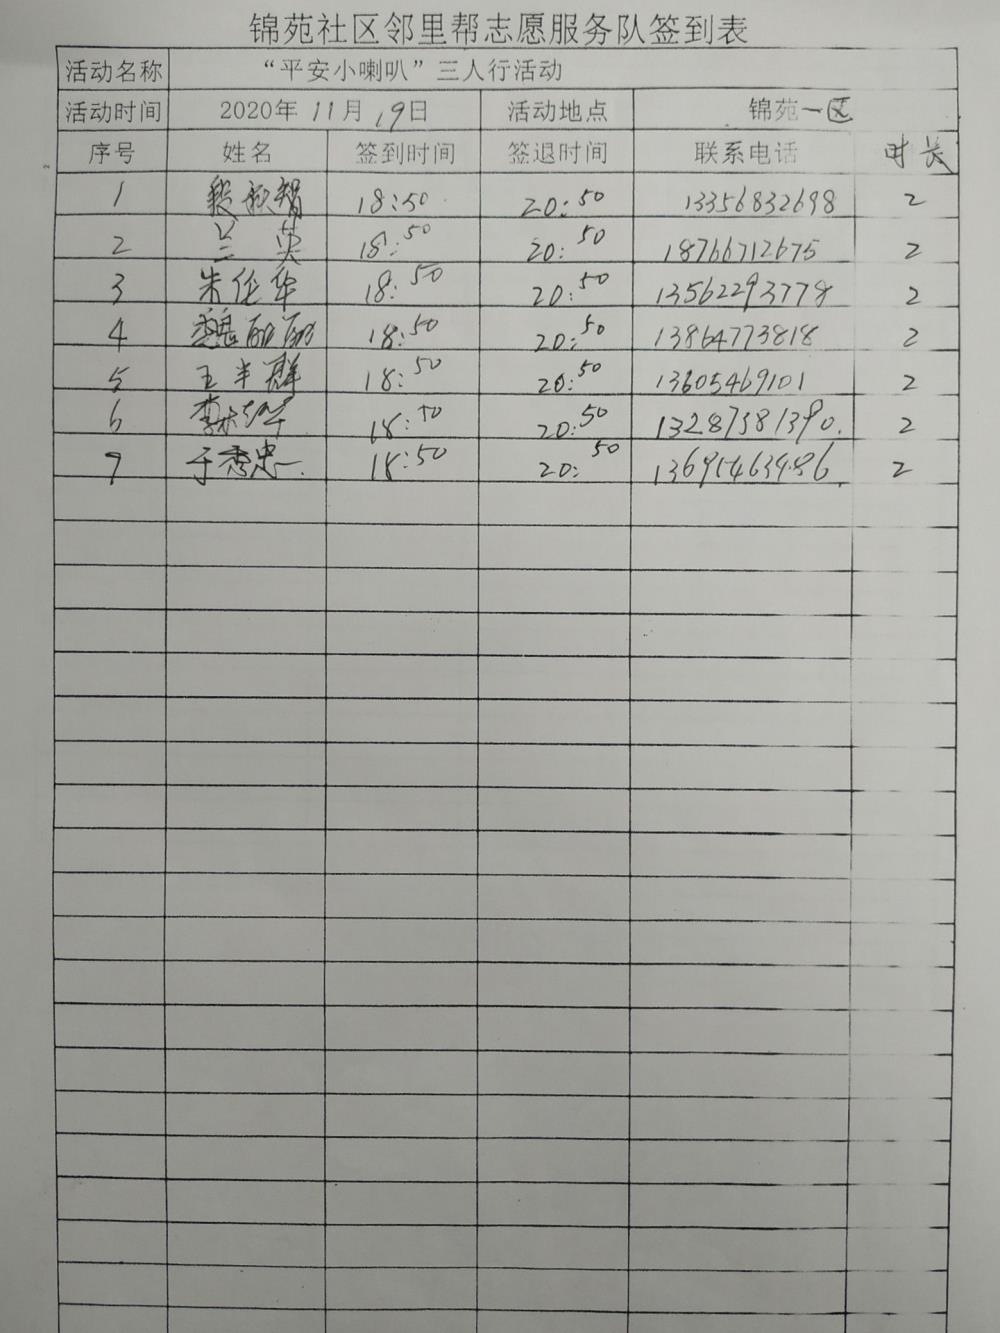 锦苑社区邻里帮志愿服务队签到表
活动名称 “平安小喇叭”三人行活动
活动时间 2020年 11月 19日 活动地点 锦苑一区
序号 姓名 签到时间 签退时间 联系电话 时长
1 18:50 20:50 13356832698 2
2 兰英 18:50 20:50 18766712675 2
3 朱伦华 18:50 20:50 13562293778 2
4 魏丽丽 18:50 20:50 13864773818 2
5 王丰群 18:50 20:50 13605469101 2
6 18:50 20:50 13287381390. 2
7 于秀忠 18:50 20:50 2